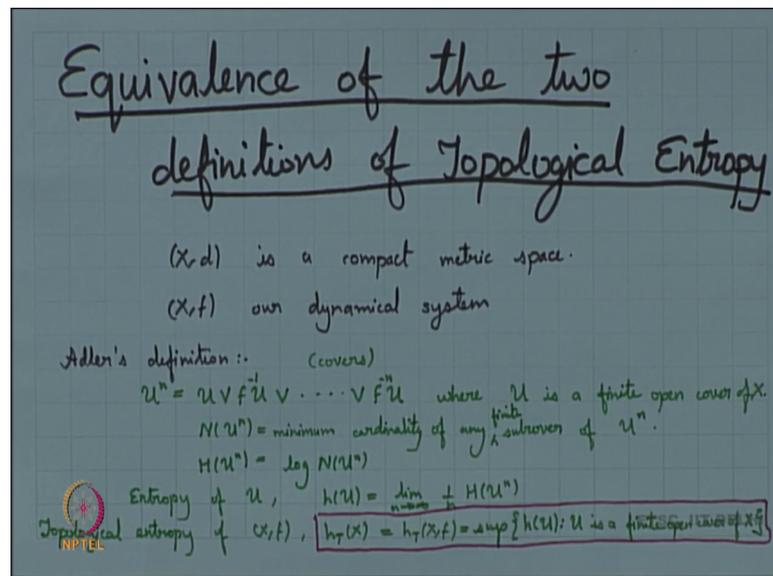 Equivalence of the two
definitions of Topological Entropy
(X,d) is a compact metric space.
(X,f) our dynamical system
Adler's definition :. (covers)
U^n = U ∨ f^{-1}U ∨ .... ∨ f^{-n}U where U is a finite open cover of X.
N(U^n) = minimum cardinality of any finite subcover of U^n.
H(U^n) = log N(U^n)
Entropy of U, h(U) = lim_{n→∞} 1/n H(U^n)
Topological entropy of (X,f), h_T(X) = h_T(X,f) = sup{h(U): U is a finite open cover of X}
NPTEL